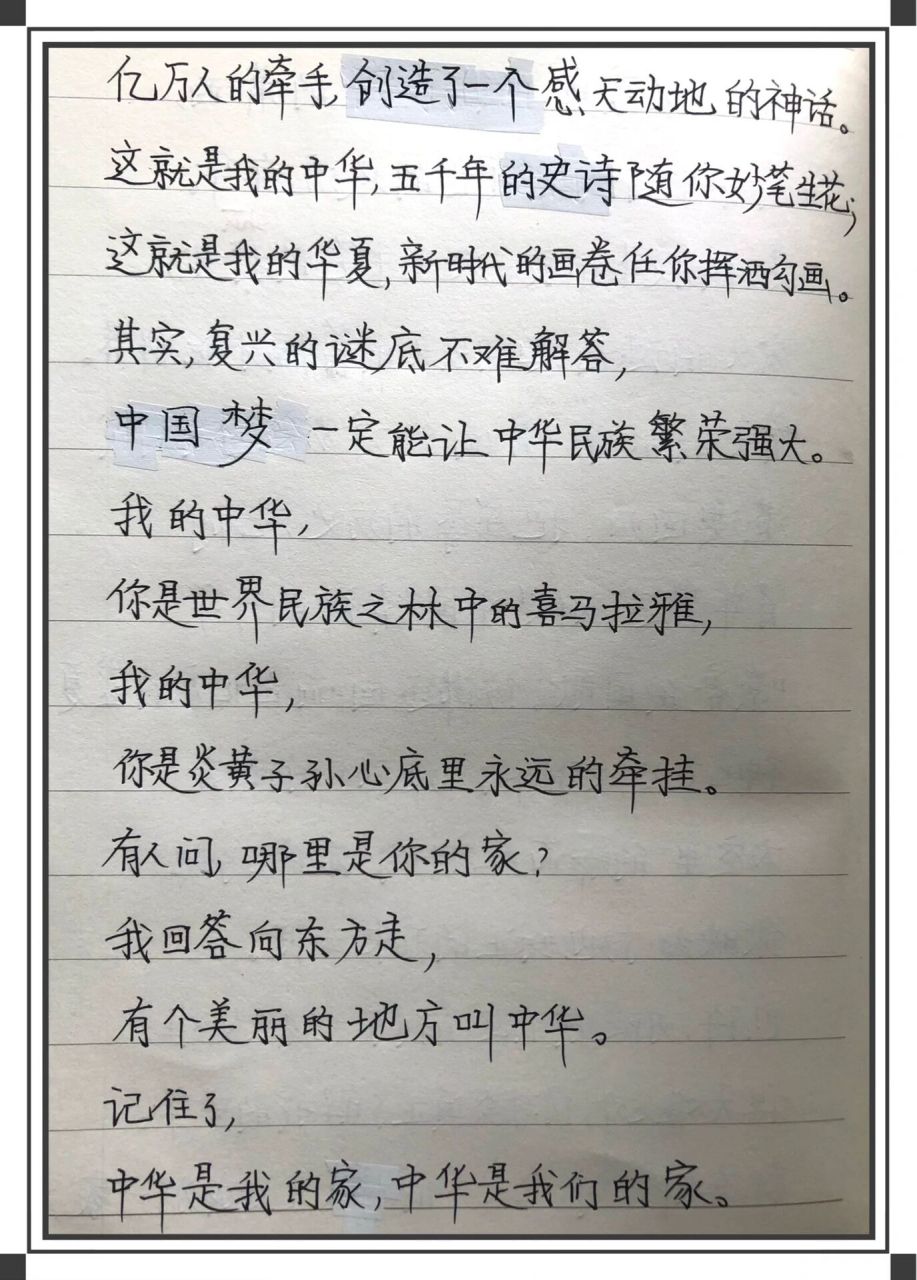 亿万人的牵手,创造了一个感天动地的神话。
这就是我的中华,五千年的史诗随你妙笔生花;
这就是我的华夏,新时代的画卷任你挥洒勾画。
其实,复兴的谜底不难解答,
中国梦一定能让中华民族繁荣强大。
我的中华,
你是世界民族之林中的喜马拉雅,
我的中华,
你是炎黄子孙心底里永远的牵挂。
有人问,哪里是你的家?
我回答向东方走,
有个美丽的地方叫中华。
记住了,
中华是我的家,中华是我们的家。